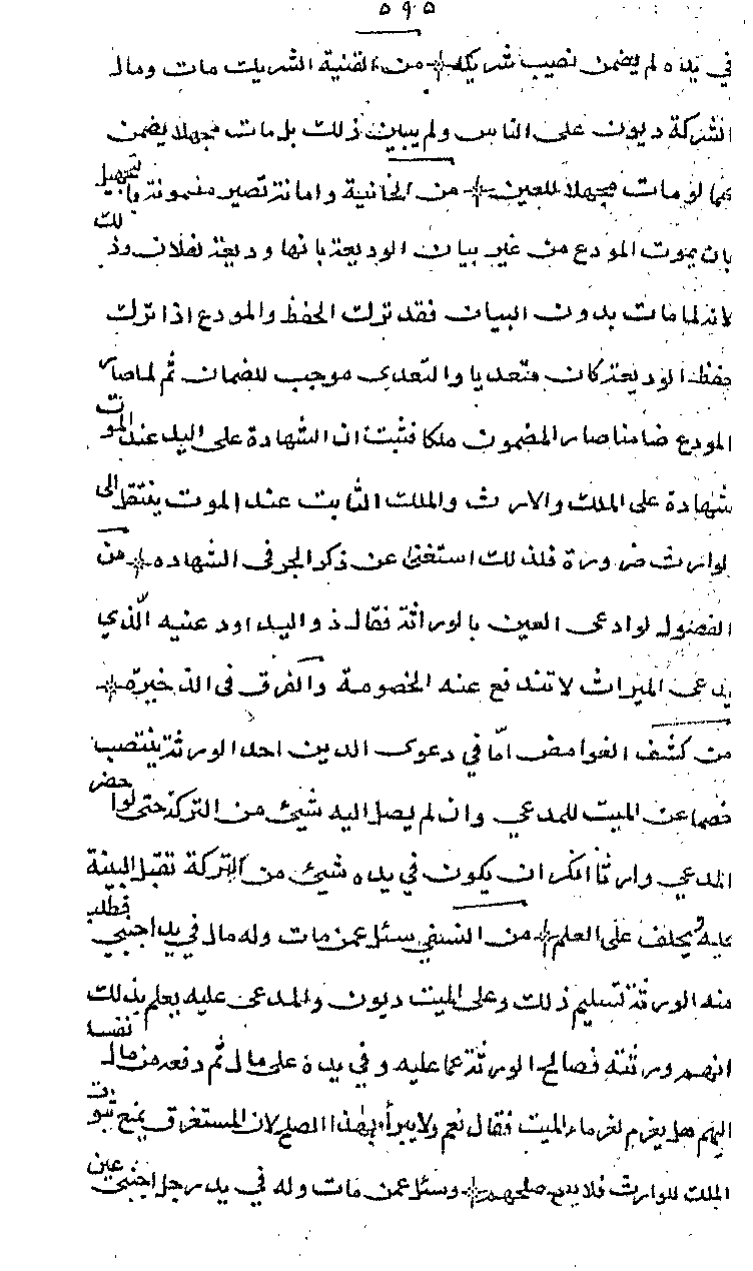 ٥٩٥
في يده لم يضمن نصيب شريكه من القنية الشريك مات ومال
الشركة ديون على الناس ولم يبين ذلك بل مات مجهلا يضمن
كما لو مات مجهلا للعين من الخانية وامانة تصير مضمونة بالتجهيل
بان يموت المودع من غير بيان الوديعة بانها وديعة لفلان وذلك
لانه لما مات بدون البيان فقد ترك الحفظ والمودع اذا ترك
حفظ الوديعة كان متعديا والتعدى موجب للضمان ثم لما صار
المودع ضامنا صار المضمون ملكا فثبت ان الشهادة على اليد عند الموت
شهادة على الملك والارث والملك الثابت عند الموت ينتقل الى
الوارث ضرورة فلذلك استغنى عن ذكر الجر في الشهاده من
الفصول لو ادعى العين بالوراثة فقال ذو اليد اودعنيه الّذي
يدعى الميراث لا تندفع عنه الخصومة والفرق فى الذخيرة
من كشف الغوامض امّا في دعوى الدين احد الورثة ينتصب
خصما عن الميت للمدعي وان لم يصل اليه شيئ من التركة حتى لو احضر
المدعي وارثا انكر ان يكون في يده شيئ من التركة تقبل البينة
عليه ويحلف على العلم من النسفي سئل عمن مات وله مال في يد اجنبي فطلب
منه الورثة تسليم ذلك وعلى الميت ديون والمدعى عليه يعلم بذلك
انهم ورثته فصالح الورثة عما عليه وفي يده على مال ثم دفعه من مال نفسه
اليهم هل يغرم لغرماء الميت فقال نعم ولا يبرأ بهذا الصلح لان المستغرق يمنع ثبوت
الملك للوارث فلا يصح صلحهم وسئل عمن مات وله في يد رجل اجنبي عين